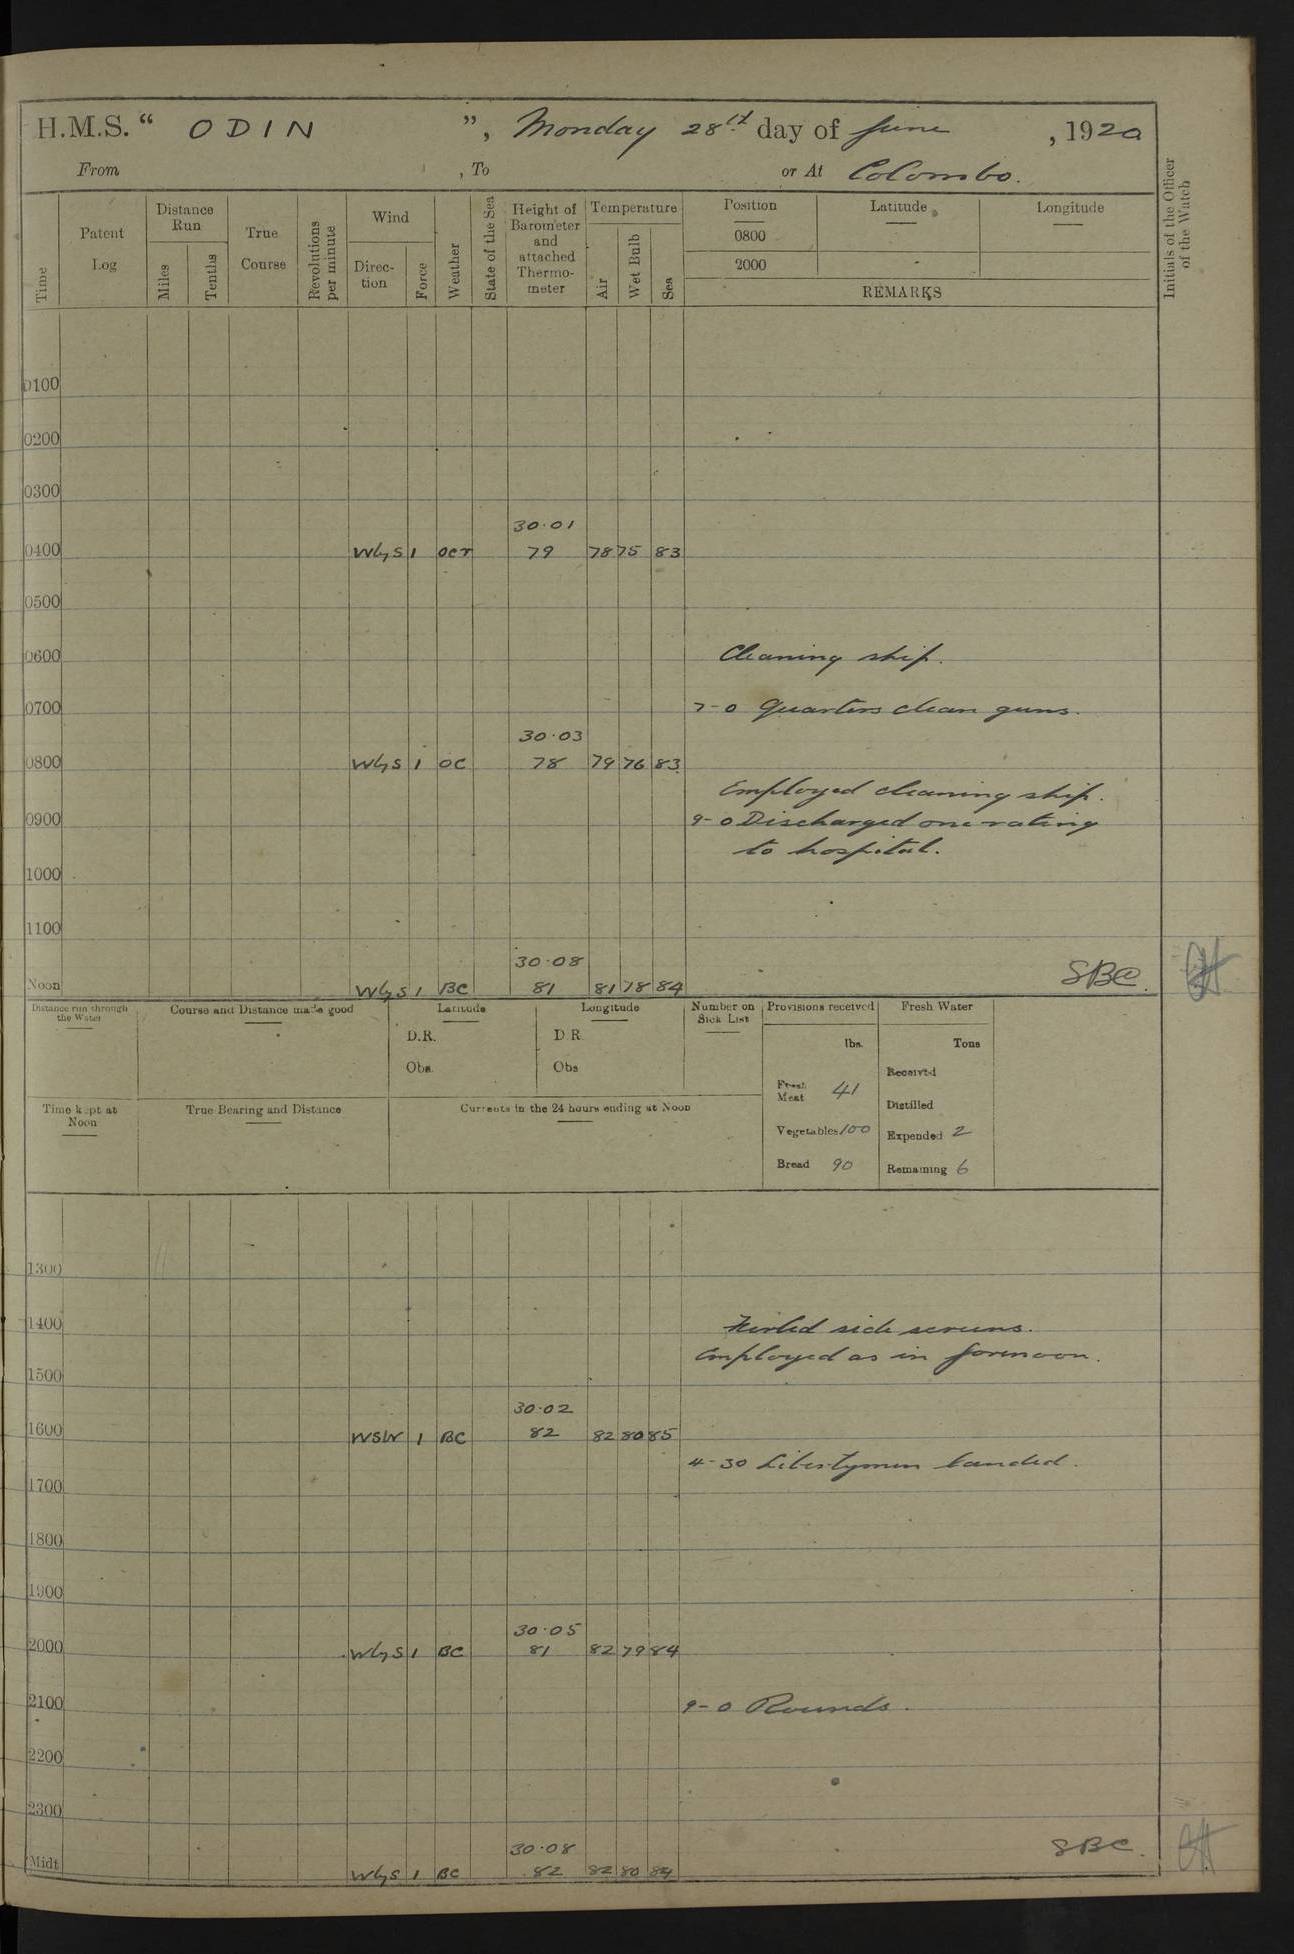 H.M.S. “ ODIN ”, Monday 28th day of June, 1920
From , To or At Colombo.
Time
Patent Log
Distance Run
Miles
Tenths
True Course
Revolutions per minute
Wind
Direction
Force
Weather
State of the Sea
Height of Barometer and attached Thermometer
Temperature
Air
Wet Bulb
Sea
Position Latitude Longitude
0800
2000
REMARKS
Initials of the Officer of the Watch
0100
0200
0300
30.01
0400 W by S 1 OCR 79 78 75 83
0500
0600 Cleaning ship.
0700 7-0 Quarters clean guns.
30.03
0800 W by S 1 OC 78 79 76 83
Employed cleaning ship.
0900 9-0 Discharged one rating
to hospital.
1000
1100
30.08
Noon W by S 1 BC 81 81 78 84 SBC.
Distance run through the Water
Course and Distance made good
Latitude
D.R.
Obs.
Longitude
D.R.
Obs
Number on Sick List
Provisions received
lbs.
Fresh Meat 41
Vegetables 100
Bread 90
Fresh Water
Tons
Received
Distilled
Expended 2
Remaining 6
Time kept at Noon
True Bearing and Distance
Currents in the 24 hours ending at Noon
1300
1400 Furled side screens.
Employed as in forenoon.
1500
30.02
1600 WSW 1 BC 82 82 80 85
4-30 Libertymen landed.
1700
1800
1900
30.05
2000 W by S 1 BC 81 82 79 84
2100 9-0 Rounds.
2200
2300
30.08 SBC.
Midt W by S 1 BC 82 82 80 84